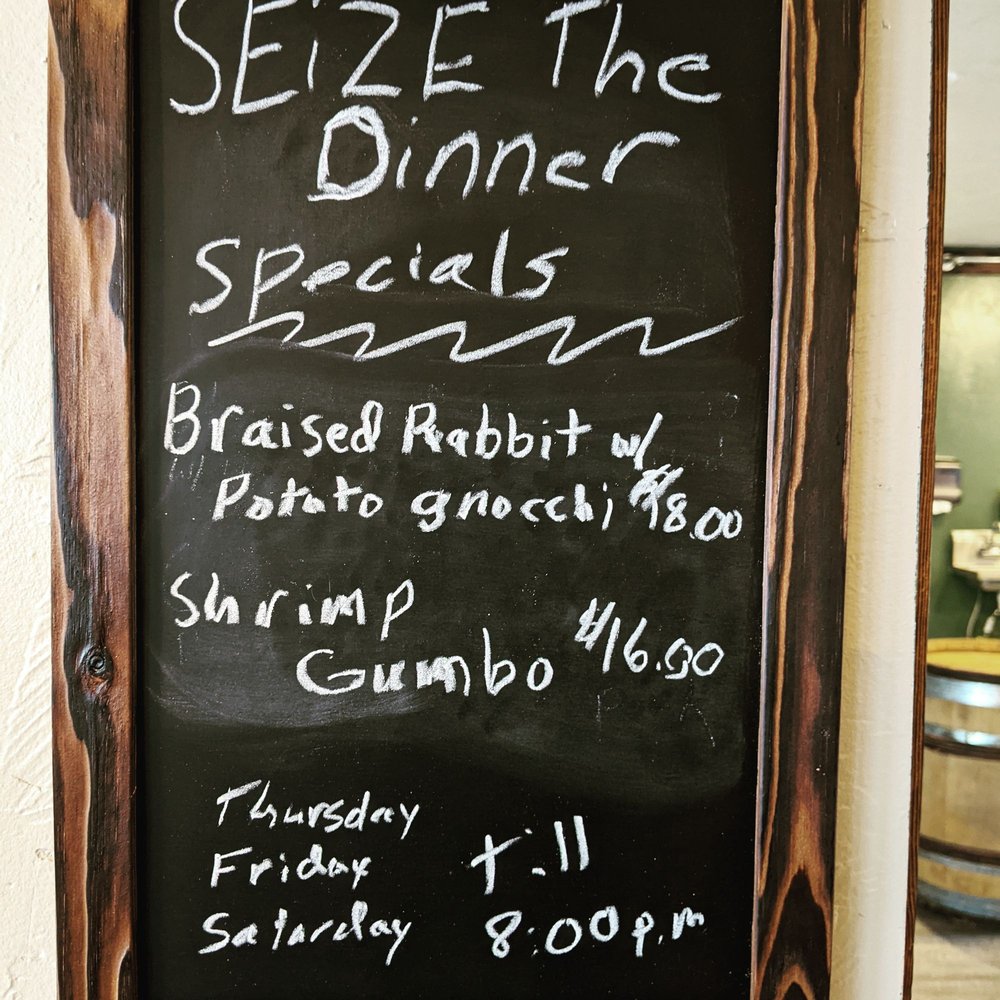 SEiZE The
Dinner
Specials
Braised Rabbit w/
Potato gnocchi $18.00
Shrimp
Gumbo $16.00
Thursday
Friday till
Saturday 8:00 p.m